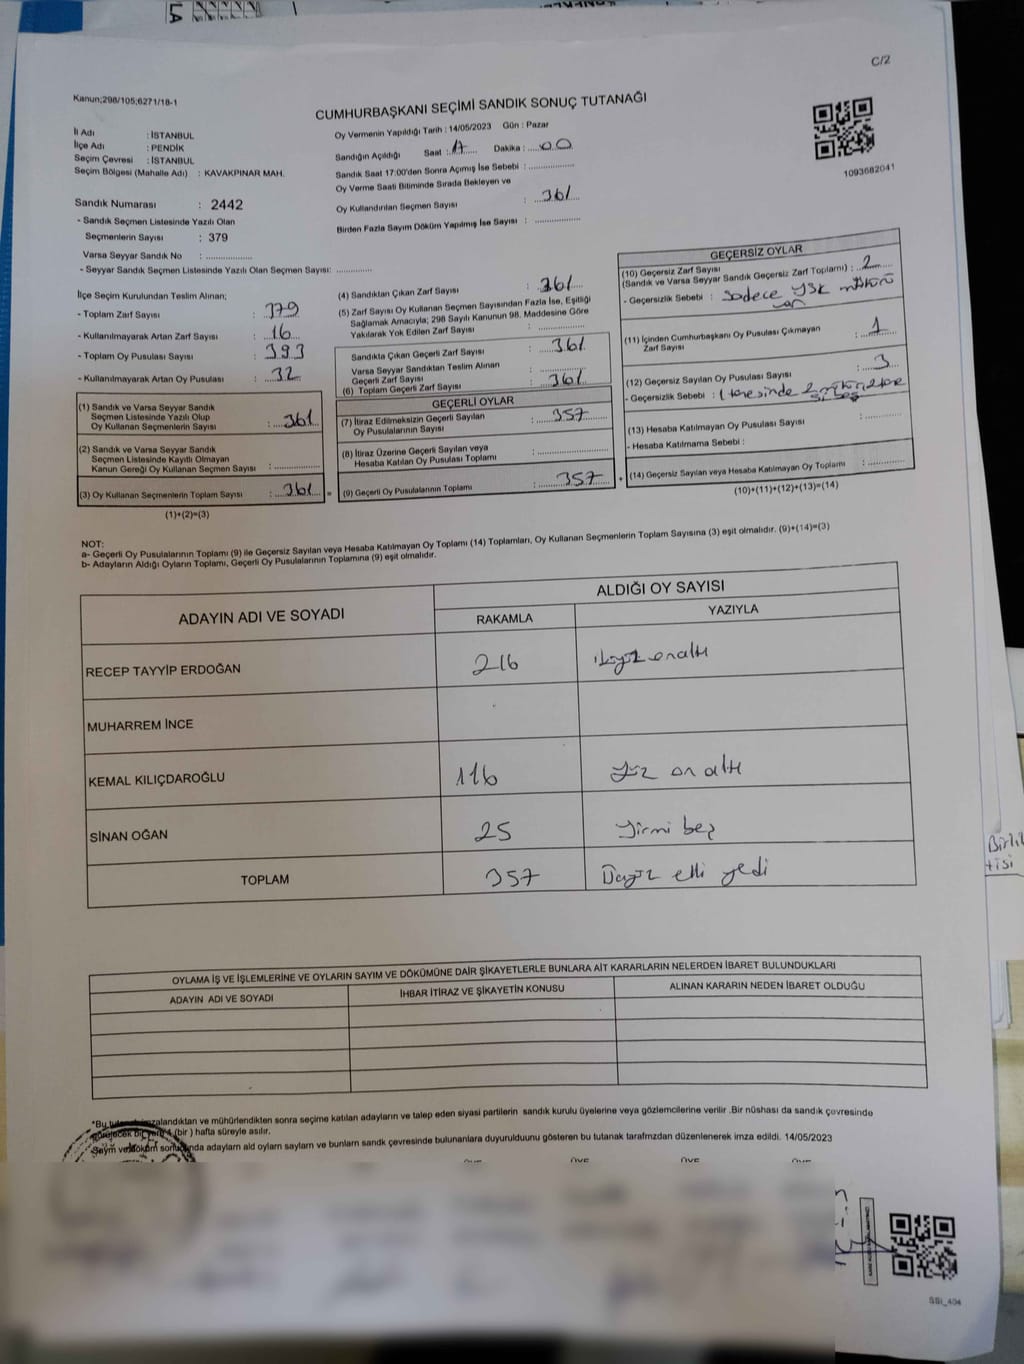 C/2
Kanun;298/105;6271/18-1
CUMHURBAŞKANI SEÇİMİ SANDIK SONUÇ TUTANAĞI
İl Adı : İSTANBUL
İlçe Adı : PENDİK
Seçim Çevresi : İSTANBUL
Seçim Bölgesi (Mahalle Adı) : KAVAKPINAR MAH.
Oy Vermenin Yapıldığı Tarih : 14/05/2023 Gün : Pazar
Sandığın Açıldığı Saat : 17 Dakika : 00
Sandık Saat 17:00'den Sonra Açımış İse Sebebi :
Oy Verme Saati Bitiminde Sırada Bekleyen ve
Oy Kullandırılan Seçmen Sayısı : 361
Birden Fazla Sayım Döküm Yapılmış İse Sayısı :
1093682041
Sandık Numarası : 2442
- Sandık Seçmen Listesinde Yazılı Olan
Seçmenlerin Sayısı : 379
Varsa Seyyar Sandık No :
- Seyyar Sandık Seçmen Listesinde Yazılı Olan Seçmen Sayısı:
İlçe Seçim Kurulundan Teslim Alınan;
- Toplam Zarf Sayısı : 379
- Kullanılmayarak Artan Zarf Sayısı : 16
- Toplam Oy Pusulası Sayısı : 393
- Kullanılmayarak Artan Oy Pusulası : 32
(1) Sandık ve Varsa Seyyar Sandık
Seçmen Listesinde Yazılı Olup
Oy Kullanan Seçmenlerin Sayısı : 361
(2) Sandık ve Varsa Seyyar Sandık
Seçmen Listesinde Kayıtlı Olmayan
Kanun Gereği Oy Kullanan Seçmen Sayısı :
(3) Oy Kullanan Seçmenlerin Toplam Sayısı : 361
(1)+(2)=(3)
(4) Sandıktan Çıkan Zarf Sayısı : 361
(5) Zarf Sayısı Oy Kullanan Seçmen Sayısından Fazla İse, Eşitliği
Sağlamak Amacıyla; 298 Sayılı Kanunun 98. Maddesine Göre
Yakılarak Yok Edilen Zarf Sayısı :
Sandıkta Çıkan Geçerli Zarf Sayısı : 361
Varsa Seyyar Sandıktan Teslim Alınan
Geçerli Zarf Sayısı
(6) Toplam Geçerli Zarf Sayısı : 361
GEÇERLİ OYLAR
(7) İtiraz Edilmeksizin Geçerli Sayılan
Oy Pusulalarının Sayısı : 357
(8) İtiraz Üzerine Geçerli Sayılan veya
Hesaba Katılan Oy Pusulası Toplamı :
= (9) Geçerli Oy Pusulalarının Toplamı : 357 +
GEÇERSİZ OYLAR
(10) Geçersiz Zarf Sayısı
(Sandık ve Varsa Seyyar Sandık Geçersiz Zarf Toplamı) : 2
- Geçersizlik Sebebi : Sadece YSK mührü
var
(11) İçinden Cumhurbaşkanı Oy Pusulası Çıkmayan
Zarf Sayısı : 1
(12) Geçersiz Sayılan Oy Pusulası Sayısı : 3
- Geçersizlik Sebebi : 1 tanesinde
(13) Hesaba Katılmayan Oy Pusulası Sayısı :
- Hesaba Katılmama Sebebi :
(14) Geçersiz Sayılan veya Hesaba Katılmayan Oy Toplamı :
(10)+(11)+(12)+(13)=(14)
NOT:
a- Geçerli Oy Pusulalarının Toplamı (9) ile Geçersiz Sayılan veya Hesaba Katılmayan Oy Toplamı (14) Toplamları, Oy Kullanan Seçmenlerin Toplam Sayısına (3) eşit olmalıdır. (9)+(14)=(3)
b- Adayların Aldığı Oyların Toplamı, Geçerli Oy Pusulalarının Toplamına (9) eşit olmalıdır.
ADAYIN ADI VE SOYADI
ALDIĞI OY SAYISI
RAKAMLA YAZIYLA
RECEP TAYYİP ERDOĞAN 216 ikiyüz onaltı
MUHARREM İNCE
KEMAL KILIÇDAROĞLU 116 yüz on altı
SİNAN OĞAN 25 yirmi beş
TOPLAM 357 Üçyüz elli yedi
Birlik
tisi
OYLAMA İŞ VE İŞLEMLERİNE VE OYLARIN SAYIM VE DÖKÜMÜNE DAİR ŞİKAYETLERLE BUNLARA AİT KARARLARIN NELERDEN İBARET BULUNDUKLARI
ADAYIN ADI VE SOYADI İHBAR İTİRAZ VE ŞİKAYETİN KONUSU ALINAN KARARIN NEDEN İBARET OLDUĞU
*Bu imzalandıktan ve mühürlendikten sonra seçime katılan adayların ve talep eden siyasi partilerin sandık kurulu üyelerine veya gözlemcilerine verilir .Bir nüshası da sandık çevresinde
(bir ) hafta süreyle asılır.
Sayım ve döküm adaylarn ald oylarn saylarn ve bunlarn sandk çevresinde bulunanlara duyurulduunu gösteren bu tutanak tarafmzdan düzenlenerek imza edildi. 14/05/2023
SSI_404